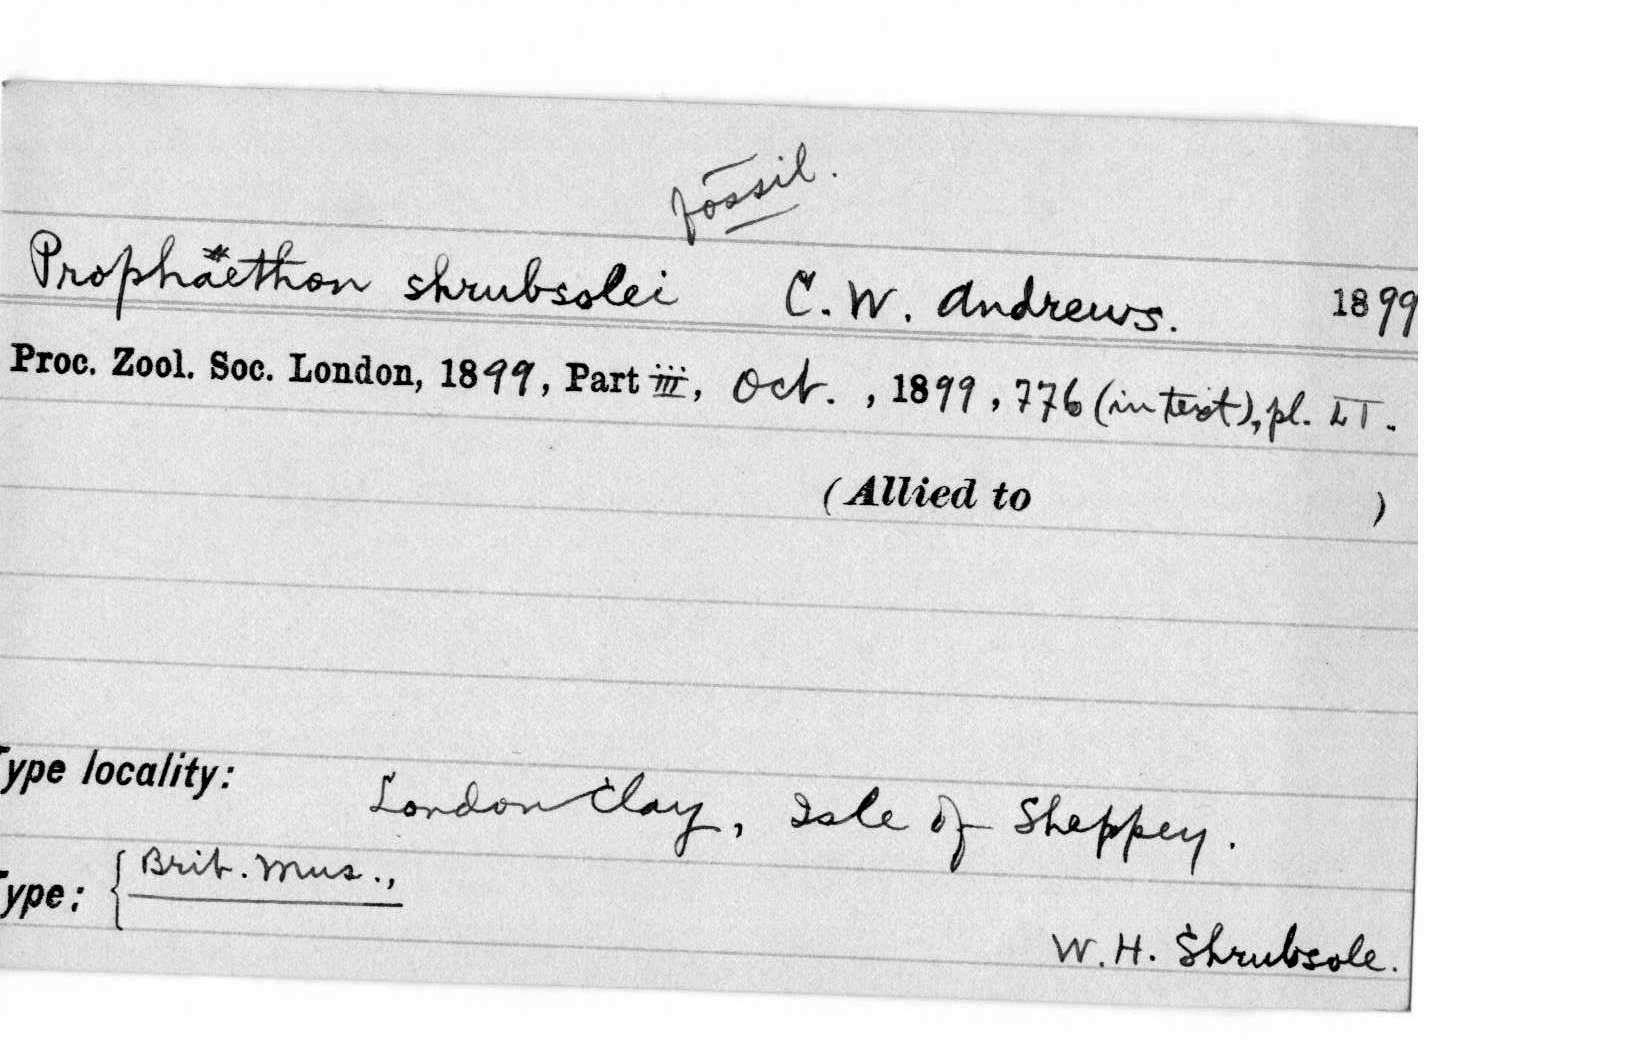 fossil.
Prophäethon shrubsolei C. W. Andrews. 1899
Proc. Zool. Soc. London, 1899, Part iii, Oct. , 1899, 776 (in text), pl. LI.
(Allied to )
Type locality: London Clay, Isle of Sheppey.
Type: { Brit. Mus.,
W. H. Shrubsole.